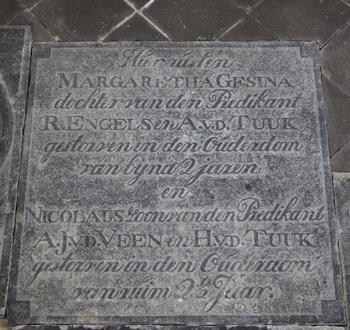 Hier rusten
MARGARETHA GESINA
dochter van den Predikant
R. ENGELS en A.V.D. TUUK
gestorven in den Ouderdom
van byna 2 jaren.
en
NICOLAUS zoon van den Predikant
A.J.V.D. VEEN en H.V.D. TUUK
gestorven in den Ouderdom
van ruim 2½ Jaar.